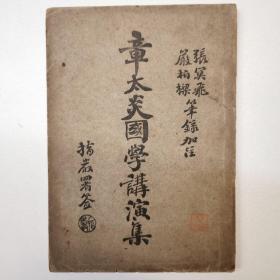 張冥飛
嚴柏樑 筆錄加注
章太炎國學講演集
署簽